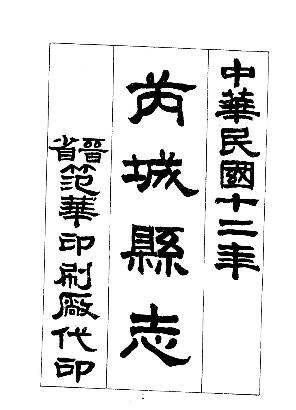 中華民國十二年
芮城縣志
晉省范華印刷厰代印